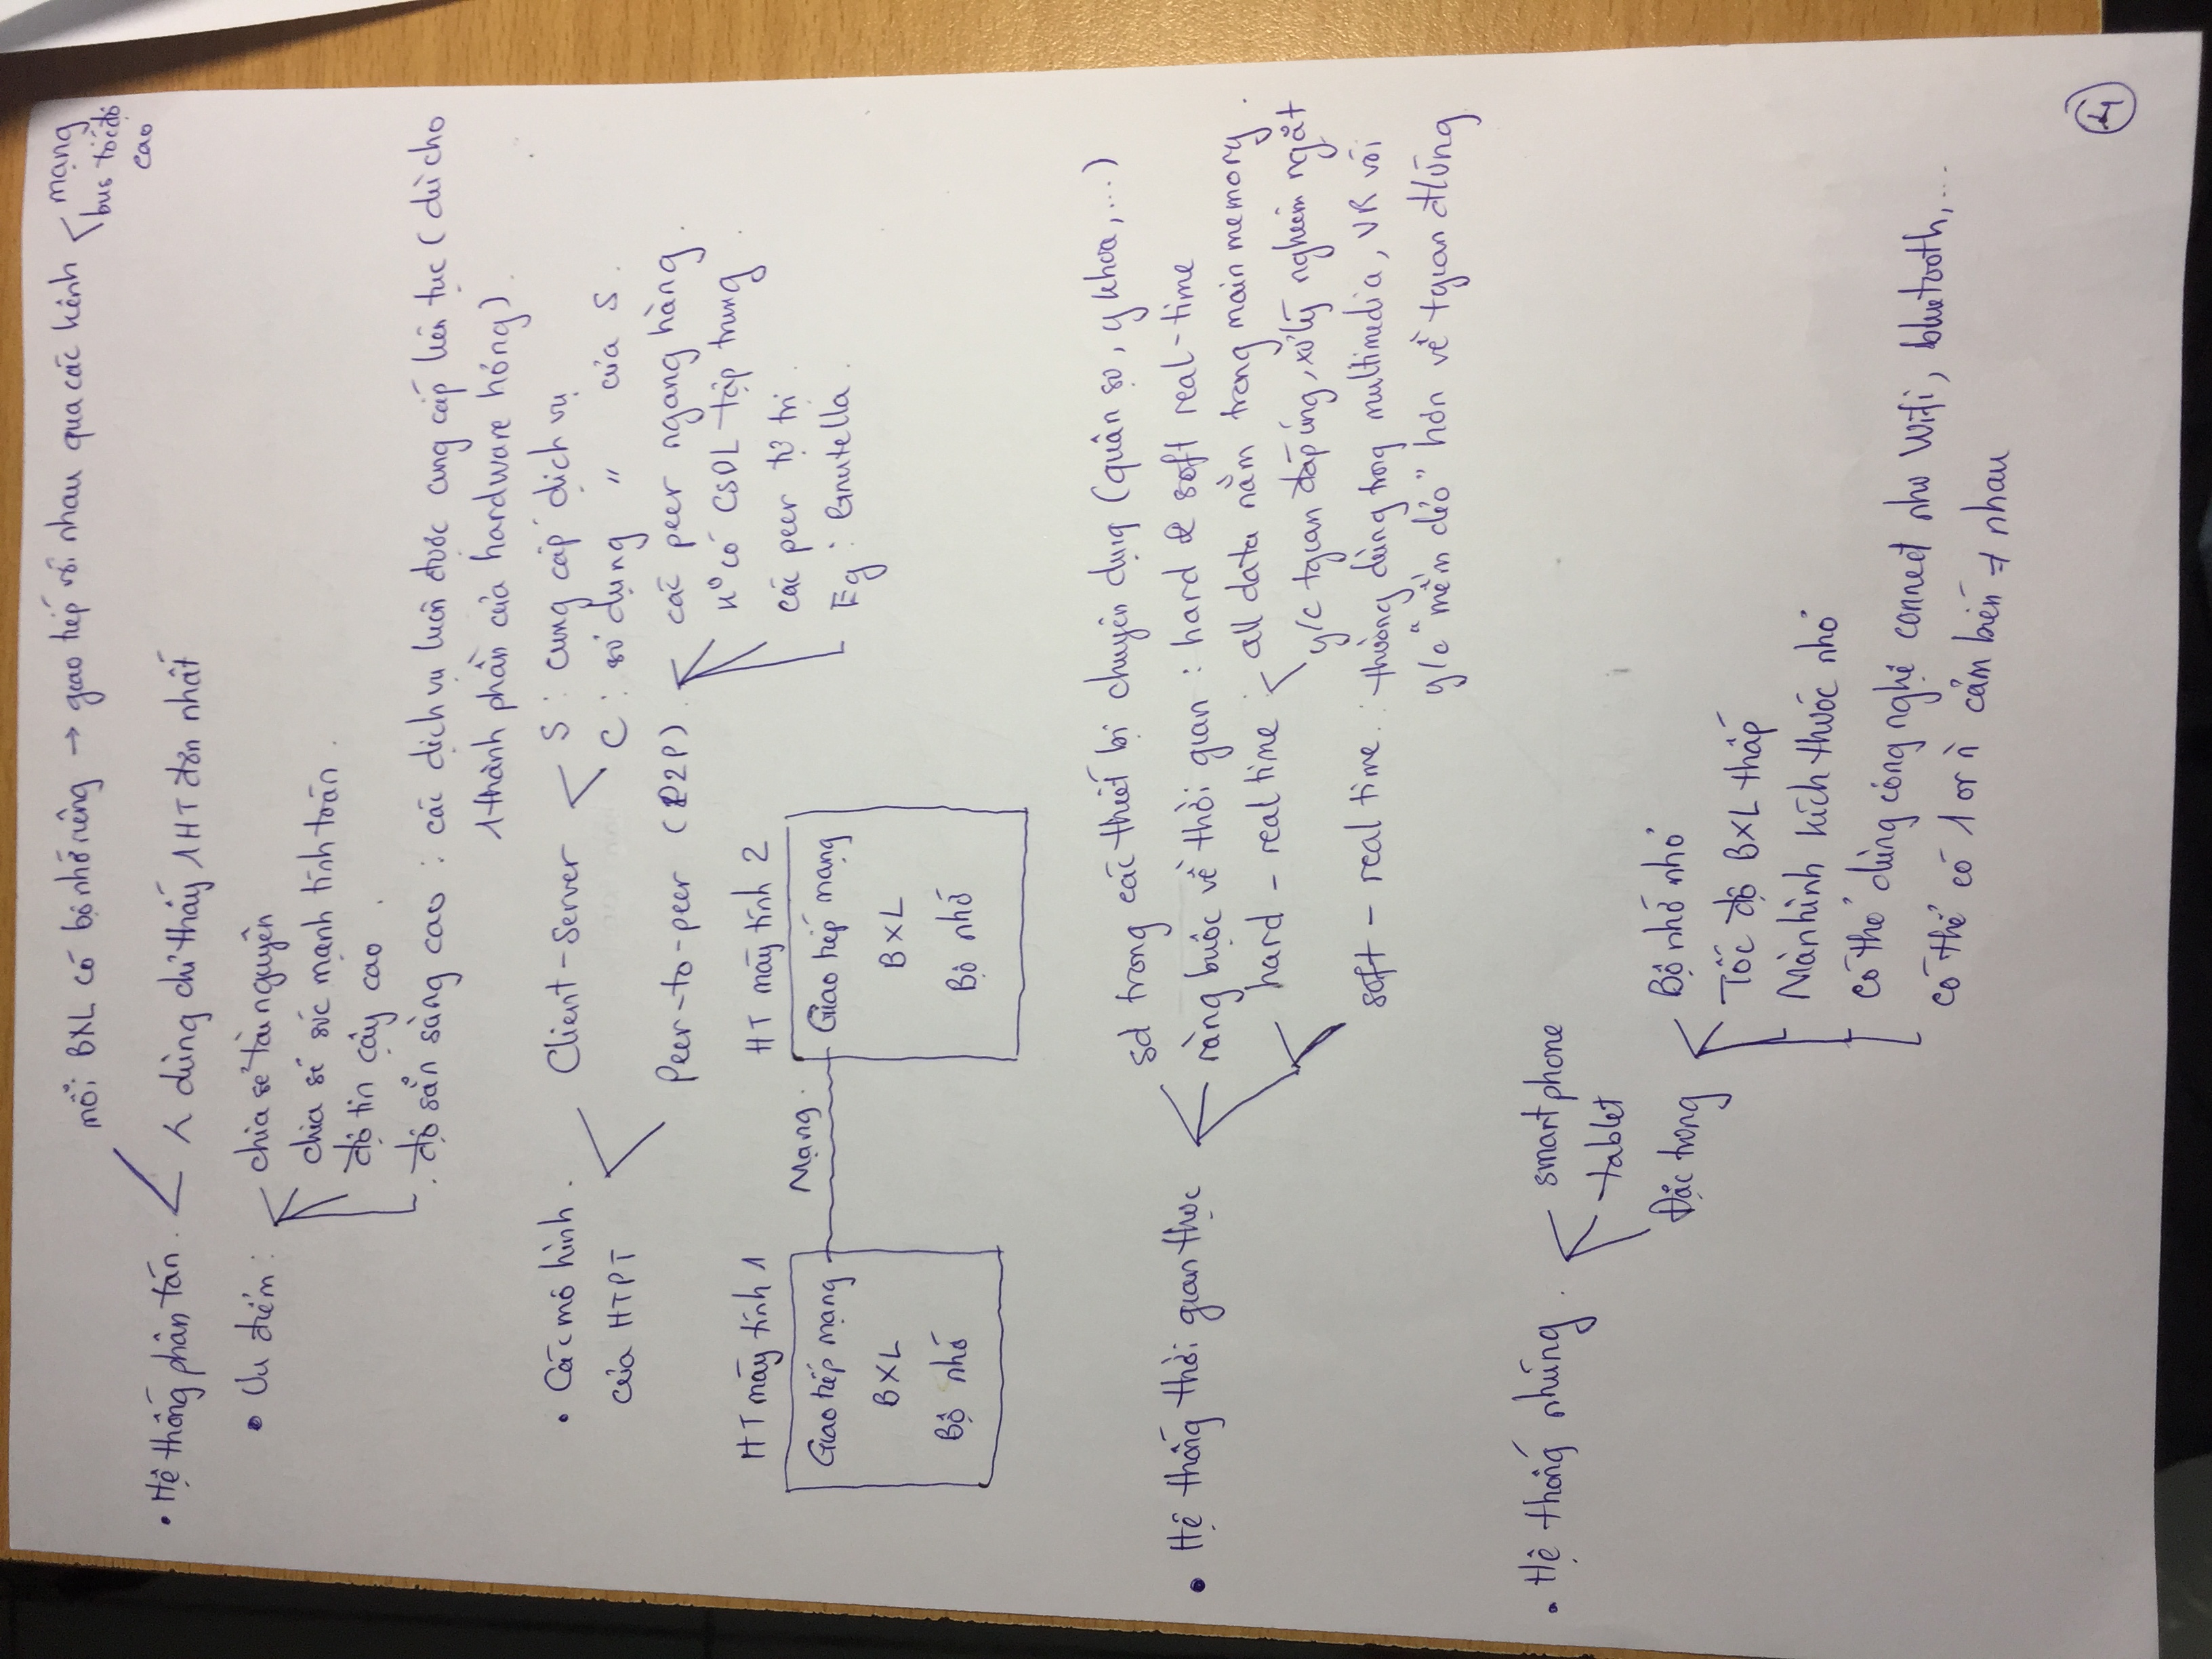 mỗi BXL có bộ nhớ riêng → giao tiếp với nhau qua các kênh
mạng
bus tốc độ
cao
• Hệ thống phân tán.
dùng chỉ thấy 1 HT đơn nhất
• Ưu điểm :
chia sẻ tài nguyên
chia sẻ sức mạnh tính toán.
độ tin cậy cao.
. độ sẵn sàng cao : các dịch vụ luôn được cung cấp liên tục (dù cho
1 thành phần của hardware hỏng).
• Các mô hình.
của HTPT
Client-Server
S : cung cấp dịch vụ
C : sử dụng " của S.
Peer-to-peer (P2P).
các peer ngang hàng.
K° có CSDL tập trung.
các peer tự trị.
Eg : Gnutella.
HT máy tính 1
HT máy tính 2
Mạng.
Giao tiếp mạng
BXL
Bộ nhớ
Giao tiếp mạng
BXL
Bộ nhớ
• Hệ thống thời gian thực
sd trong các thiết bị chuyên dụng (quân sự, y khoa,...)
ràng buộc về thời gian : hard & soft real-time
hard - real time :
all data nằm trong main memory.
y/c tgian đáp ứng, xử lý nghiêm ngặt
soft - real time. : thường dùng trong multimedia, VR với
y/c "mềm dẻo" hơn về tgian đứng
• Hệ thống nhúng.
smart phone
tablet
Đặc trưng
Bộ nhớ nhỏ
Tốc độ BXL thấp
Màn hình kích thước nhỏ
có thể dùng công nghệ connect như Wifi, bluetooth,...
có thể có 1 or n cảm biến ≠ nhau